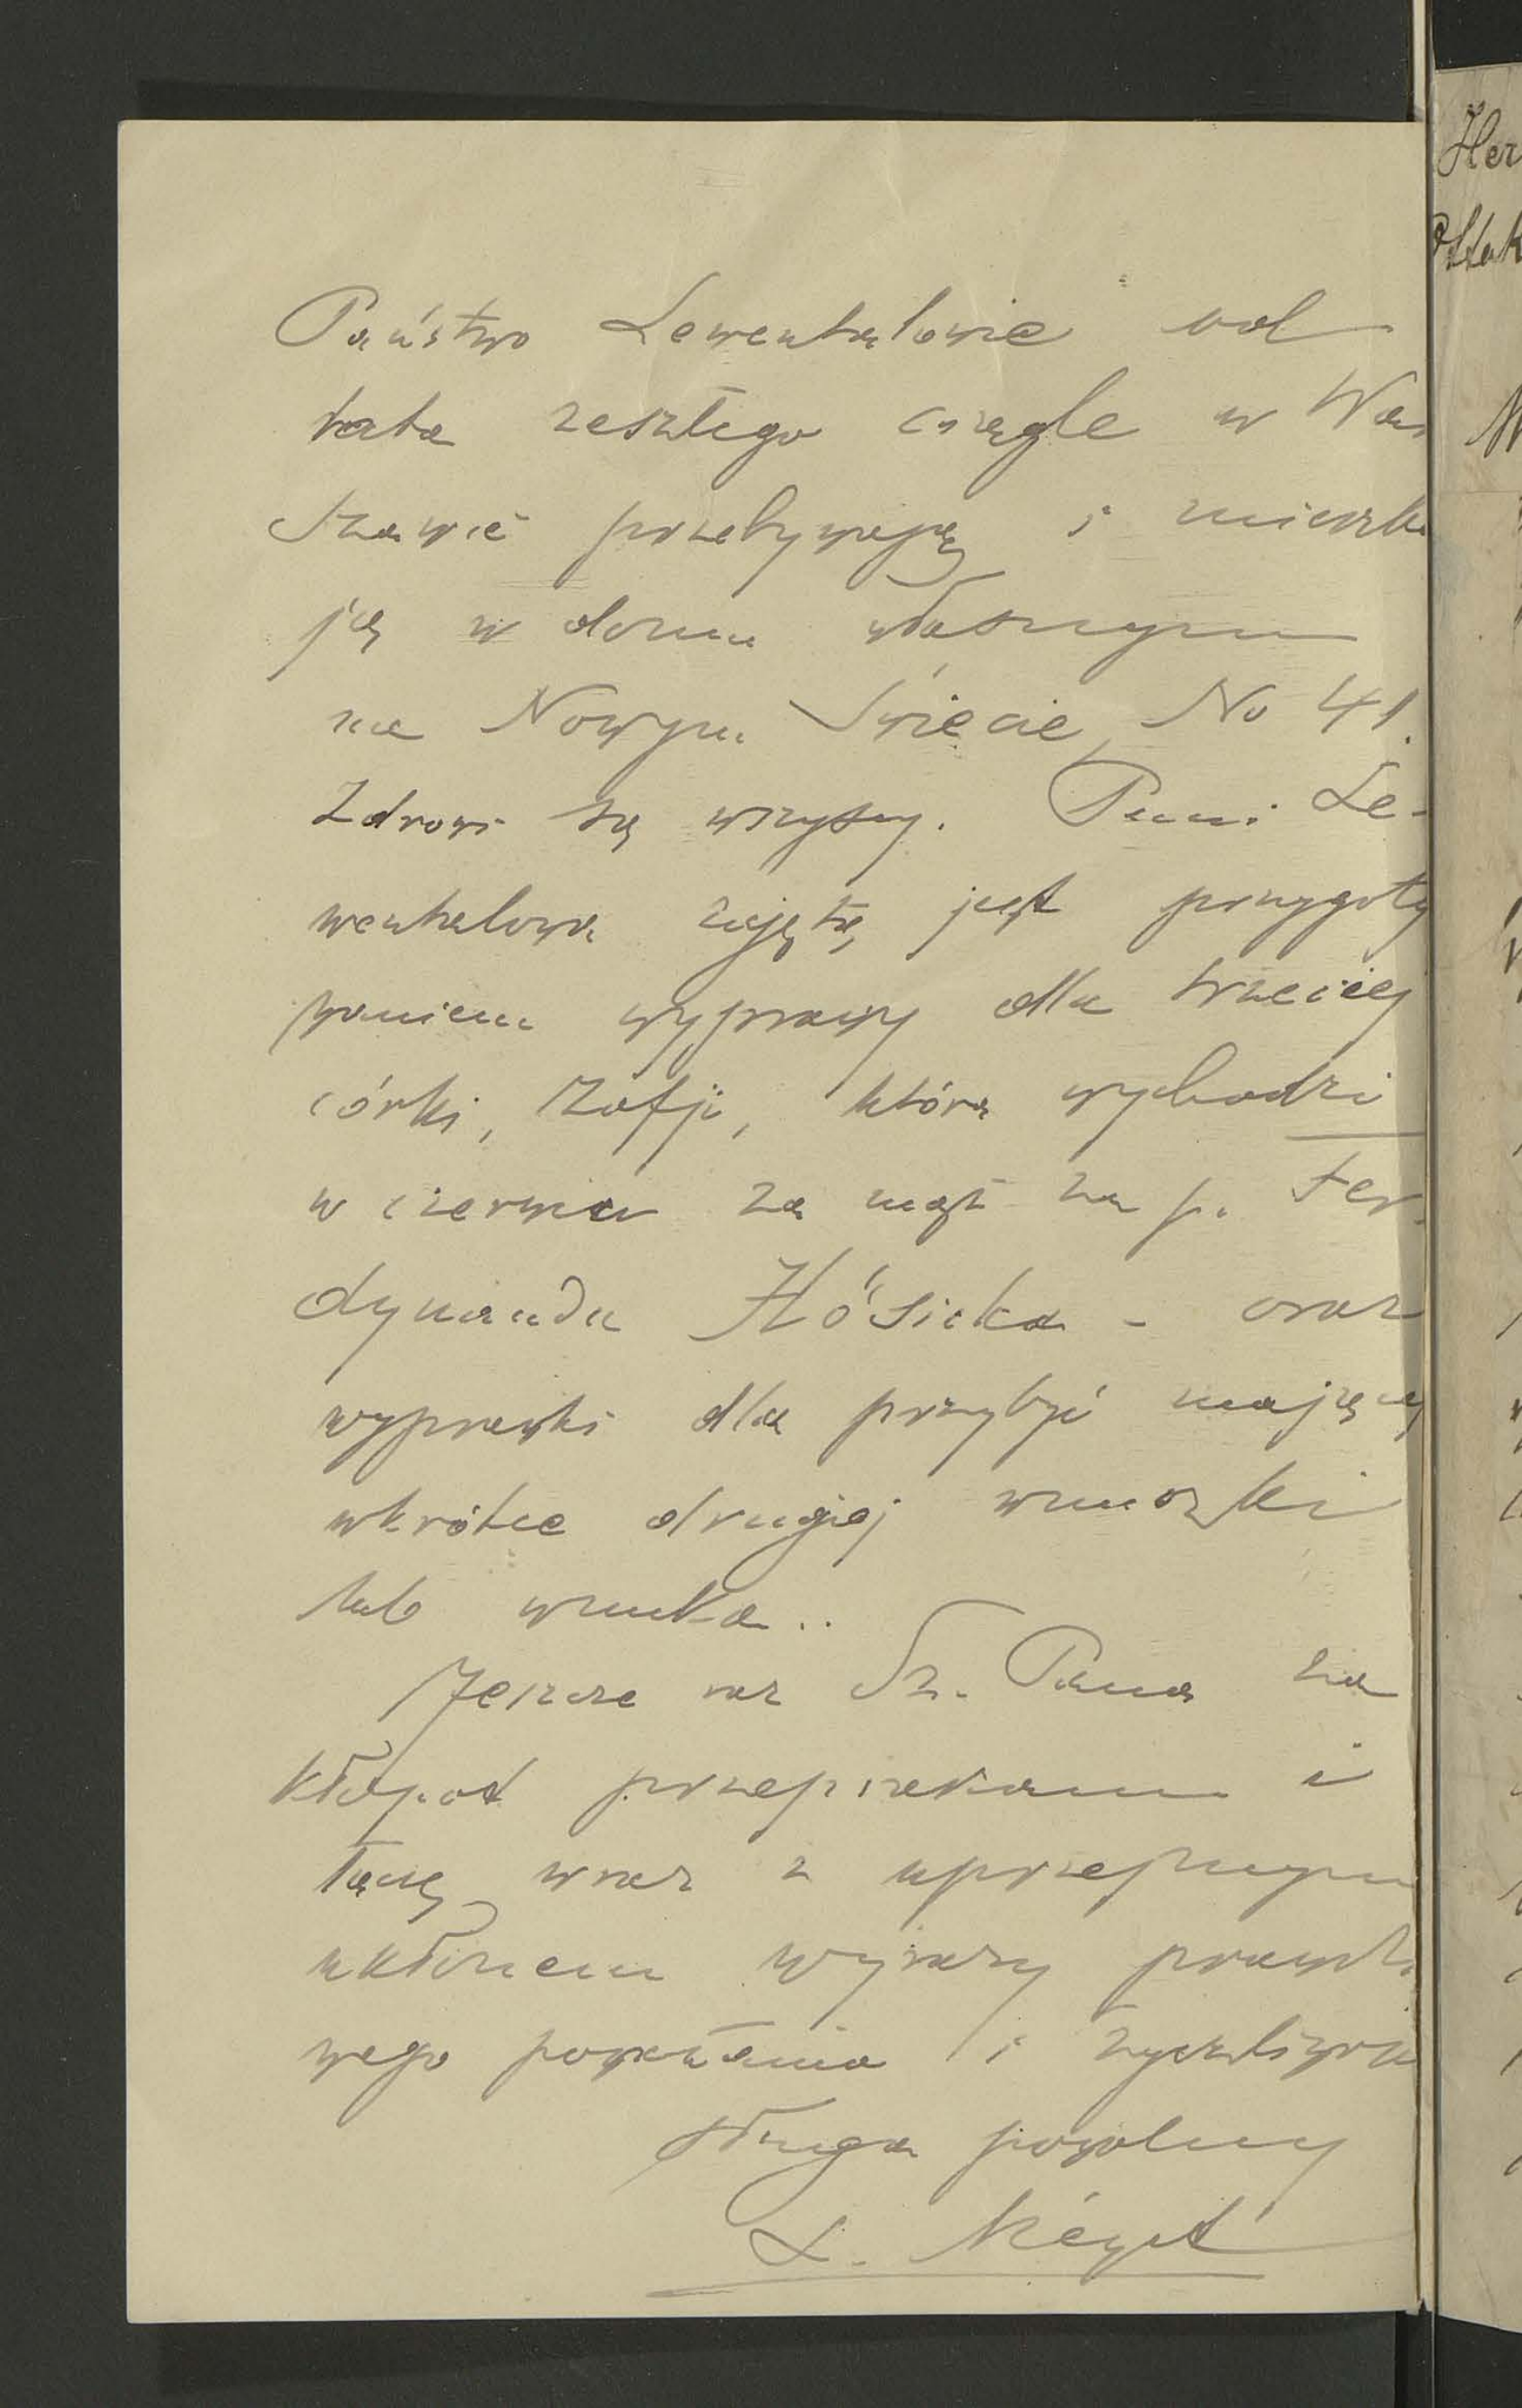 Państwo Lewentalowie od
lata zeszłego ciągle w War
szawie przebywają i mieszka
ją w domu własnym
na Nowym Świecie, No 41.
Zdrowi są wszyscy. Pani Le-
wentalowa zajętą jest przygoty
waniem wyprawy dla trzeciej
córki, Zofji, która wychodzi
w czerwcu za mąż za p. Fer
dynanda Hösicka - oraz
wyprawki dla przybyć mającej
wkrótce drugiej wnuczki
lub wnuka..
Jeszcze raz Sz. Pana za
kłopot przepraszam i
łączę wraz z uprzejmym
ukłonem wyrazy prawdzi
wego poważania i życzliwości
sługa powolny
L. Méyet
Her